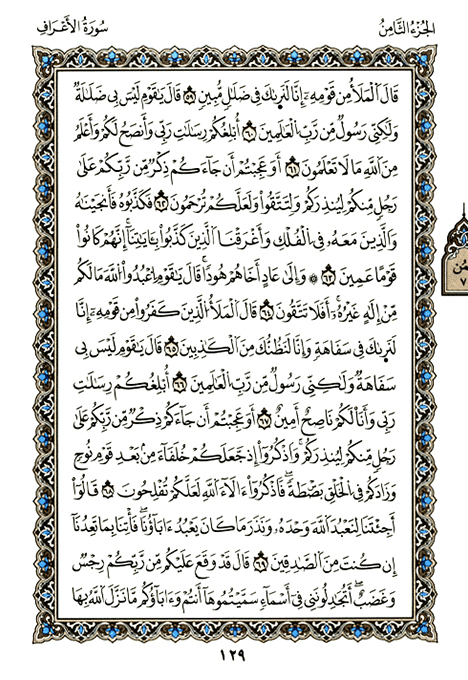 الجُزْءُ الثَّامِنُ
سُورَةُ الأَعْرَافِ
قَالَ اَلْمَلَأُ مِن قَوْمِهِۦٓ إِنَّا لَنَرَىٰكَ فِى ضَلَٰلٍ مُّبِينٍ ٥٩ قَالَ يَٰقَوْمِ لَيْسَ بِى ضَلَٰلَةٌ
وَلَٰكِنِّى رَسُولٌ مِّن رَّبِّ اِلْعَٰلَمِينَ ٦٠ أُبْلِغُكُمْ رِسَٰلَٰتِ رَبِّى وَأَنصَحُ لَكُمْ وَأَعْلَمُ
مِنَ اَللَّهِ مَا لَا تَعْلَمُونَ ٦١ أَوَعَجِبْتُمْ أَن جَآءَكُمْ ذِكْرٌ مِّن رَّبِّكُمْ عَلَىٰ
رَجُلٍ مِّنكُمْ لِيُنذِرَكُمْ وَلِتَتَّقُوا۟ وَلَعَلَّكُمْ تُرْحَمُونَ ٦٢ فَكَذَّبُوهُ فَأَنجَيْنَٰهُ
وَالَّذِينَ مَعَهُۥ فِى اِلْفُلْكِ وَأَغْرَقْنَا اَلَّذِينَ كَذَّبُوا۟ بِـَٔايَٰتِنَآ إِنَّهُمْ كَانُوا۟
قَوْمًا عَمِينَ ٦٣ ۞ وَإِلَىٰ عَادٍ أَخَاهُمْ هُودًا قَالَ يَٰقَوْمِ اِعْبُدُوا۟ اُللَّهَ مَا لَكُم
مِّنْ إِلَٰهٍ غَيْرُهُۥٓ أَفَلَا تَتَّقُونَ ٦٤ قَالَ اَلْمَلَأُ اُلَّذِينَ كَفَرُوا۟ مِن قَوْمِهِۦٓ إِنَّا
لَنَرَىٰكَ فِى سَفَاهَةٍ وَإِنَّا لَنَظُنُّكَ مِنَ اَلْكَٰذِبِينَ ٦٥ قَالَ يَٰقَوْمِ لَيْسَ بِى
سَفَاهَةٌ وَلَٰكِنِّى رَسُولٌ مِّن رَّبِّ اِلْعَٰلَمِينَ ٦٦ أُبْلِغُكُمْ رِسَٰلَٰتِ
رَبِّى وَأَنَا۠ لَكُمْ نَاصِحٌ أَمِينٌ ٦٧ أَوَعَجِبْتُمْ أَن جَآءَكُمْ ذِكْرٌ مِّن رَّبِّكُمْ عَلَىٰ
رَجُلٍ مِّنكُمْ لِيُنذِرَكُمْ وَاذْكُرُوٓا۟ إِذ جَّعَلَكُمْ خُلَفَآءَ مِنۢ بَعْدِ قَوْمِ نُوحٍ
وَزَادَكُمْ فِى اِلْخَلْقِ بَصْۜطَةً فَاذْكُرُوٓا۟ ءَالَآءَ اَللَّهِ لَعَلَّكُمْ تُفْلِحُونَ ٦٨ قَالُوٓا۟
أَجِئْتَنَا لِنَعْبُدَ اَللَّهَ وَحْدَهُۥ وَنَذَرَ مَا كَانَ يَعْبُدُ ءَابَآؤُنَا فَأْتِنَا بِمَا تَعِدُنَآ
إِن كُنتَ مِنَ اَلصَّٰدِقِينَ ٦٩ قَالَ قَدْ وَقَعَ عَلَيْكُم مِّن رَّبِّكُمْ رِجْسٌ
وَغَضَبٌ أَتُجَٰدِلُونَنِى فِىٓ أَسْمَآءٍ سَمَّيْتُمُوهَآ أَنتُمْ وَءَابَآؤُكُم مَّا نَزَّلَ اَللَّهُ بِهَا
١٢٩